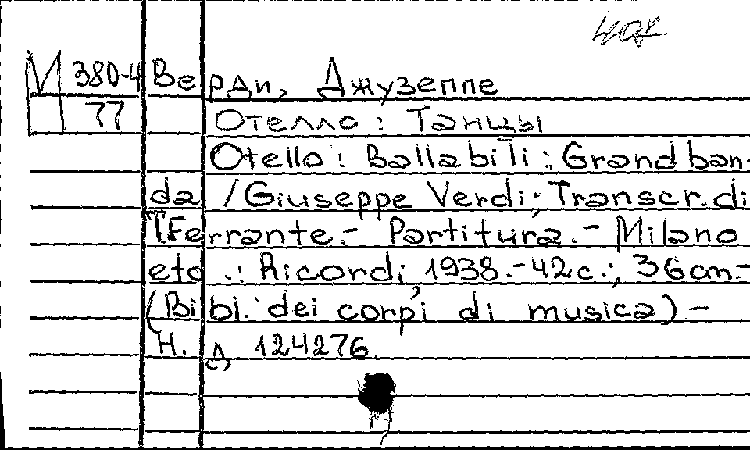 М 380-4 Верди, Джузеппе
77 Отелло: Танцы
Otello: Ballabili: Grand ban-
da / Giuseppe Verdi; Transcr. di
T. Ferrante.- Partitura.- Milano
etc.: Ricordi, 1938.- 42 c.; 36 cm.-
(Bibl. dei corpi di musica) -
Н. д. 124276